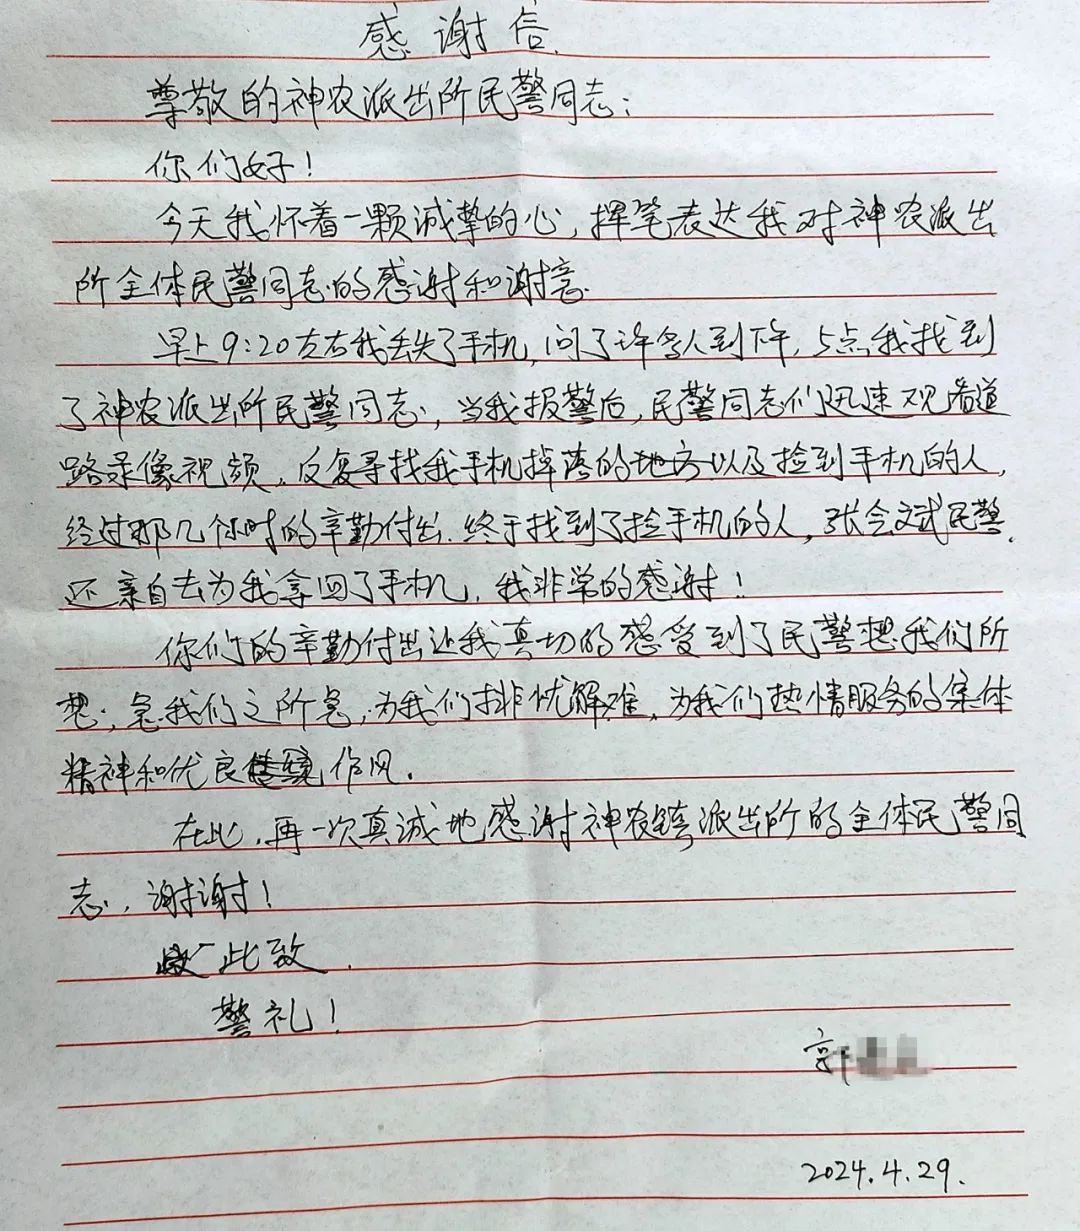 感谢信
尊敬的神农派出所民警同志：
你们好！
今天我怀着一颗诚挚的心，挥笔表达我对神农派出
所全体民警同志的感谢和谢意.
早上9:20左右我丢失了手机，问了许多人到下午，5点我找到
了神农派出所民警同志，当我报警后，民警同志们迅速观看道
路录像视频，反复寻找我手机掉落的地方以及捡到手机的人，
经过那几个小时的辛勤付出.终于找到了捡手机的人，张会斌民警.
还亲自去为我拿回了手机，我非常的感谢！
你们的辛勤付出让我真切的感受到了民警想我们所
想，急我们之所急，为我们排忧解难，为我们热情服务的集体
精神和优良作风.
在此，再一次真诚地感谢神农派出所的全体民警同
志，谢谢！
此致.
警礼！
郭
2024.4.29.